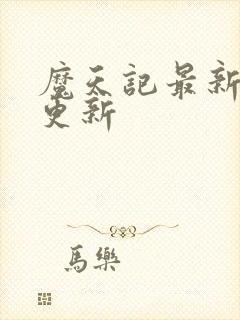 魔天記最新
更新
馬樂